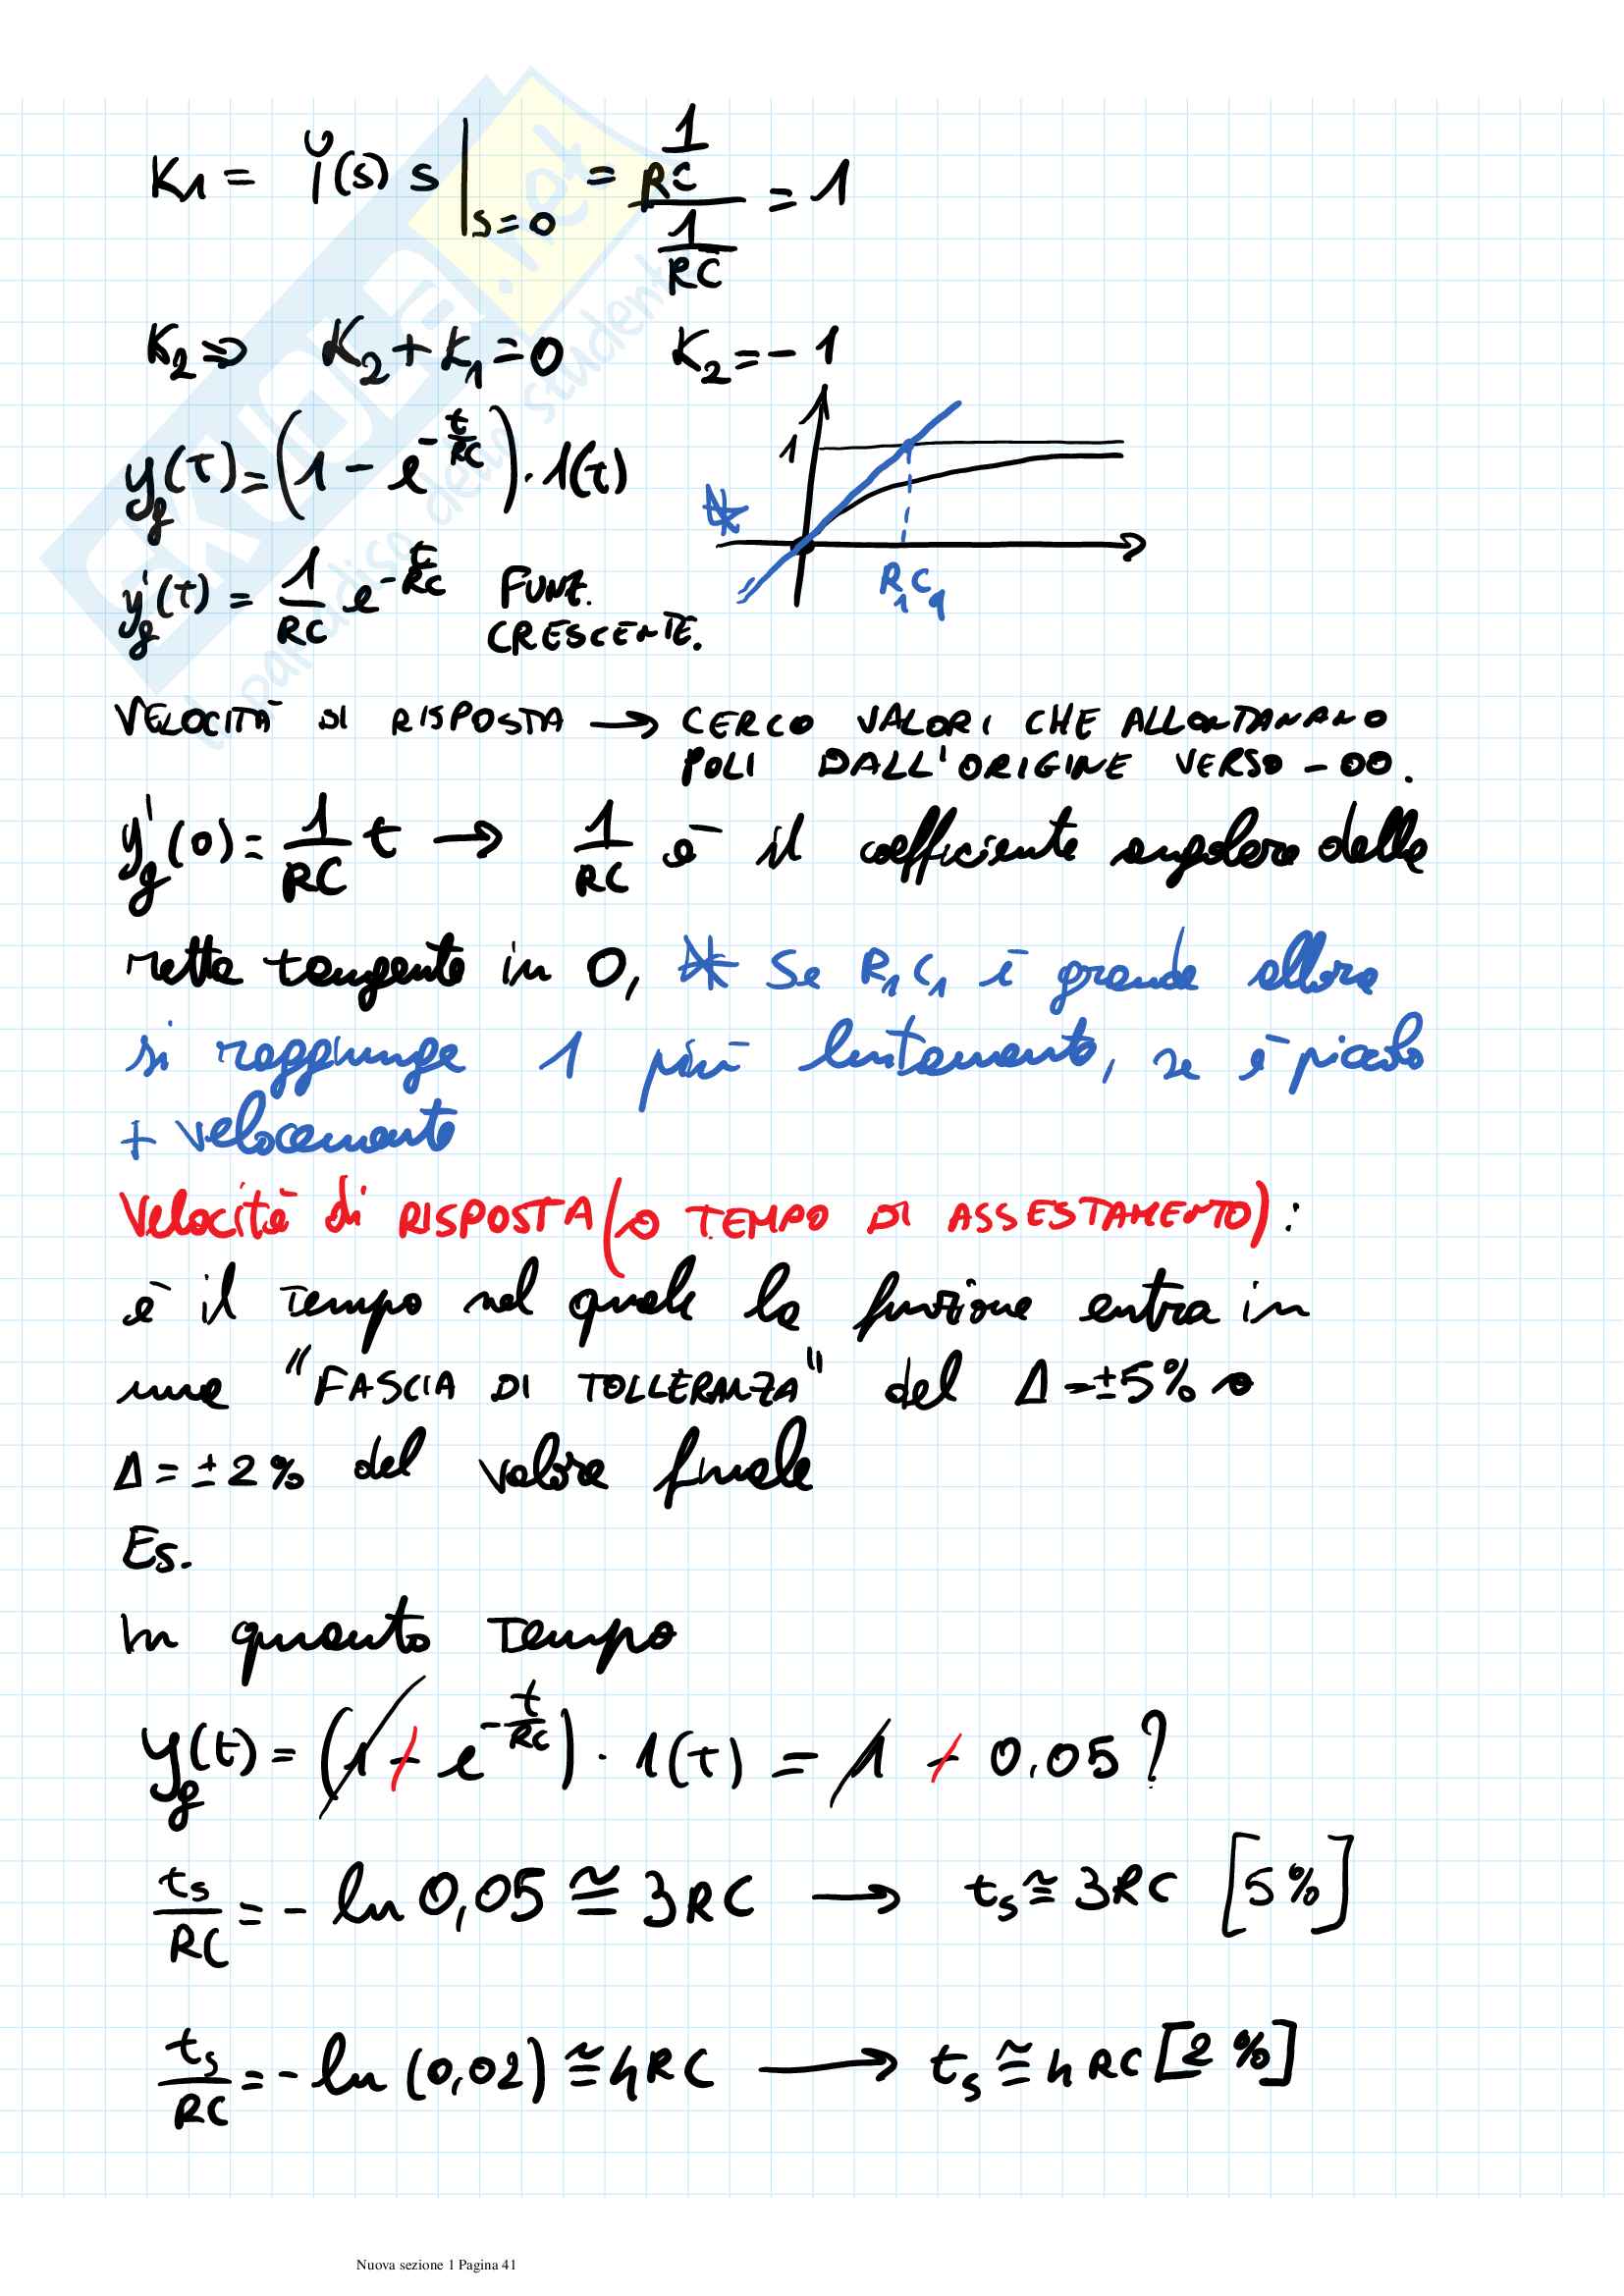 K1 = Y(s) s |s=0 = (1/RC)/(1/RC) = 1
K2 => K2 + K1 = 0 K2 = -1
yg(t) = (1 - e^(-t/RC)) · 1(t)
1
*
R1C1
y'g(t) = 1/RC e^(-t/RC) FUNZ.
CRESCENTE.
VELOCITÀ DI RISPOSTA → CERCO VALORI CHE ALLONTANANO
POLI DALL'ORIGINE VERSO -∞.
y'g(0) = 1/RC t → 1/RC è il coefficiente angolare della
retta tangente in 0, * Se R1C1 è grande allora
si raggiunge 1 più lentamente, se è piccolo
+ velocemente
Velocità di RISPOSTA (o TEMPO DI ASSESTAMENTO):
è il tempo nel quale la funzione entra in
una "FASCIA DI TOLLERANZA" del Δ=±5% o
Δ=±2% del valore finale
Es.
In quanto tempo
yg(t) = (1 - e^(-t/RC)) · 1(t) = 1 - 0.05?
ts/RC = - ln 0,05 ≅ 3RC → ts ≅ 3RC [5%]
ts/RC = - ln (0,02) ≅ 4RC → ts ≅ 4RC [2%]
skuola.net
il paradiso dello studente
Nuova sezione 1 Pagina 41